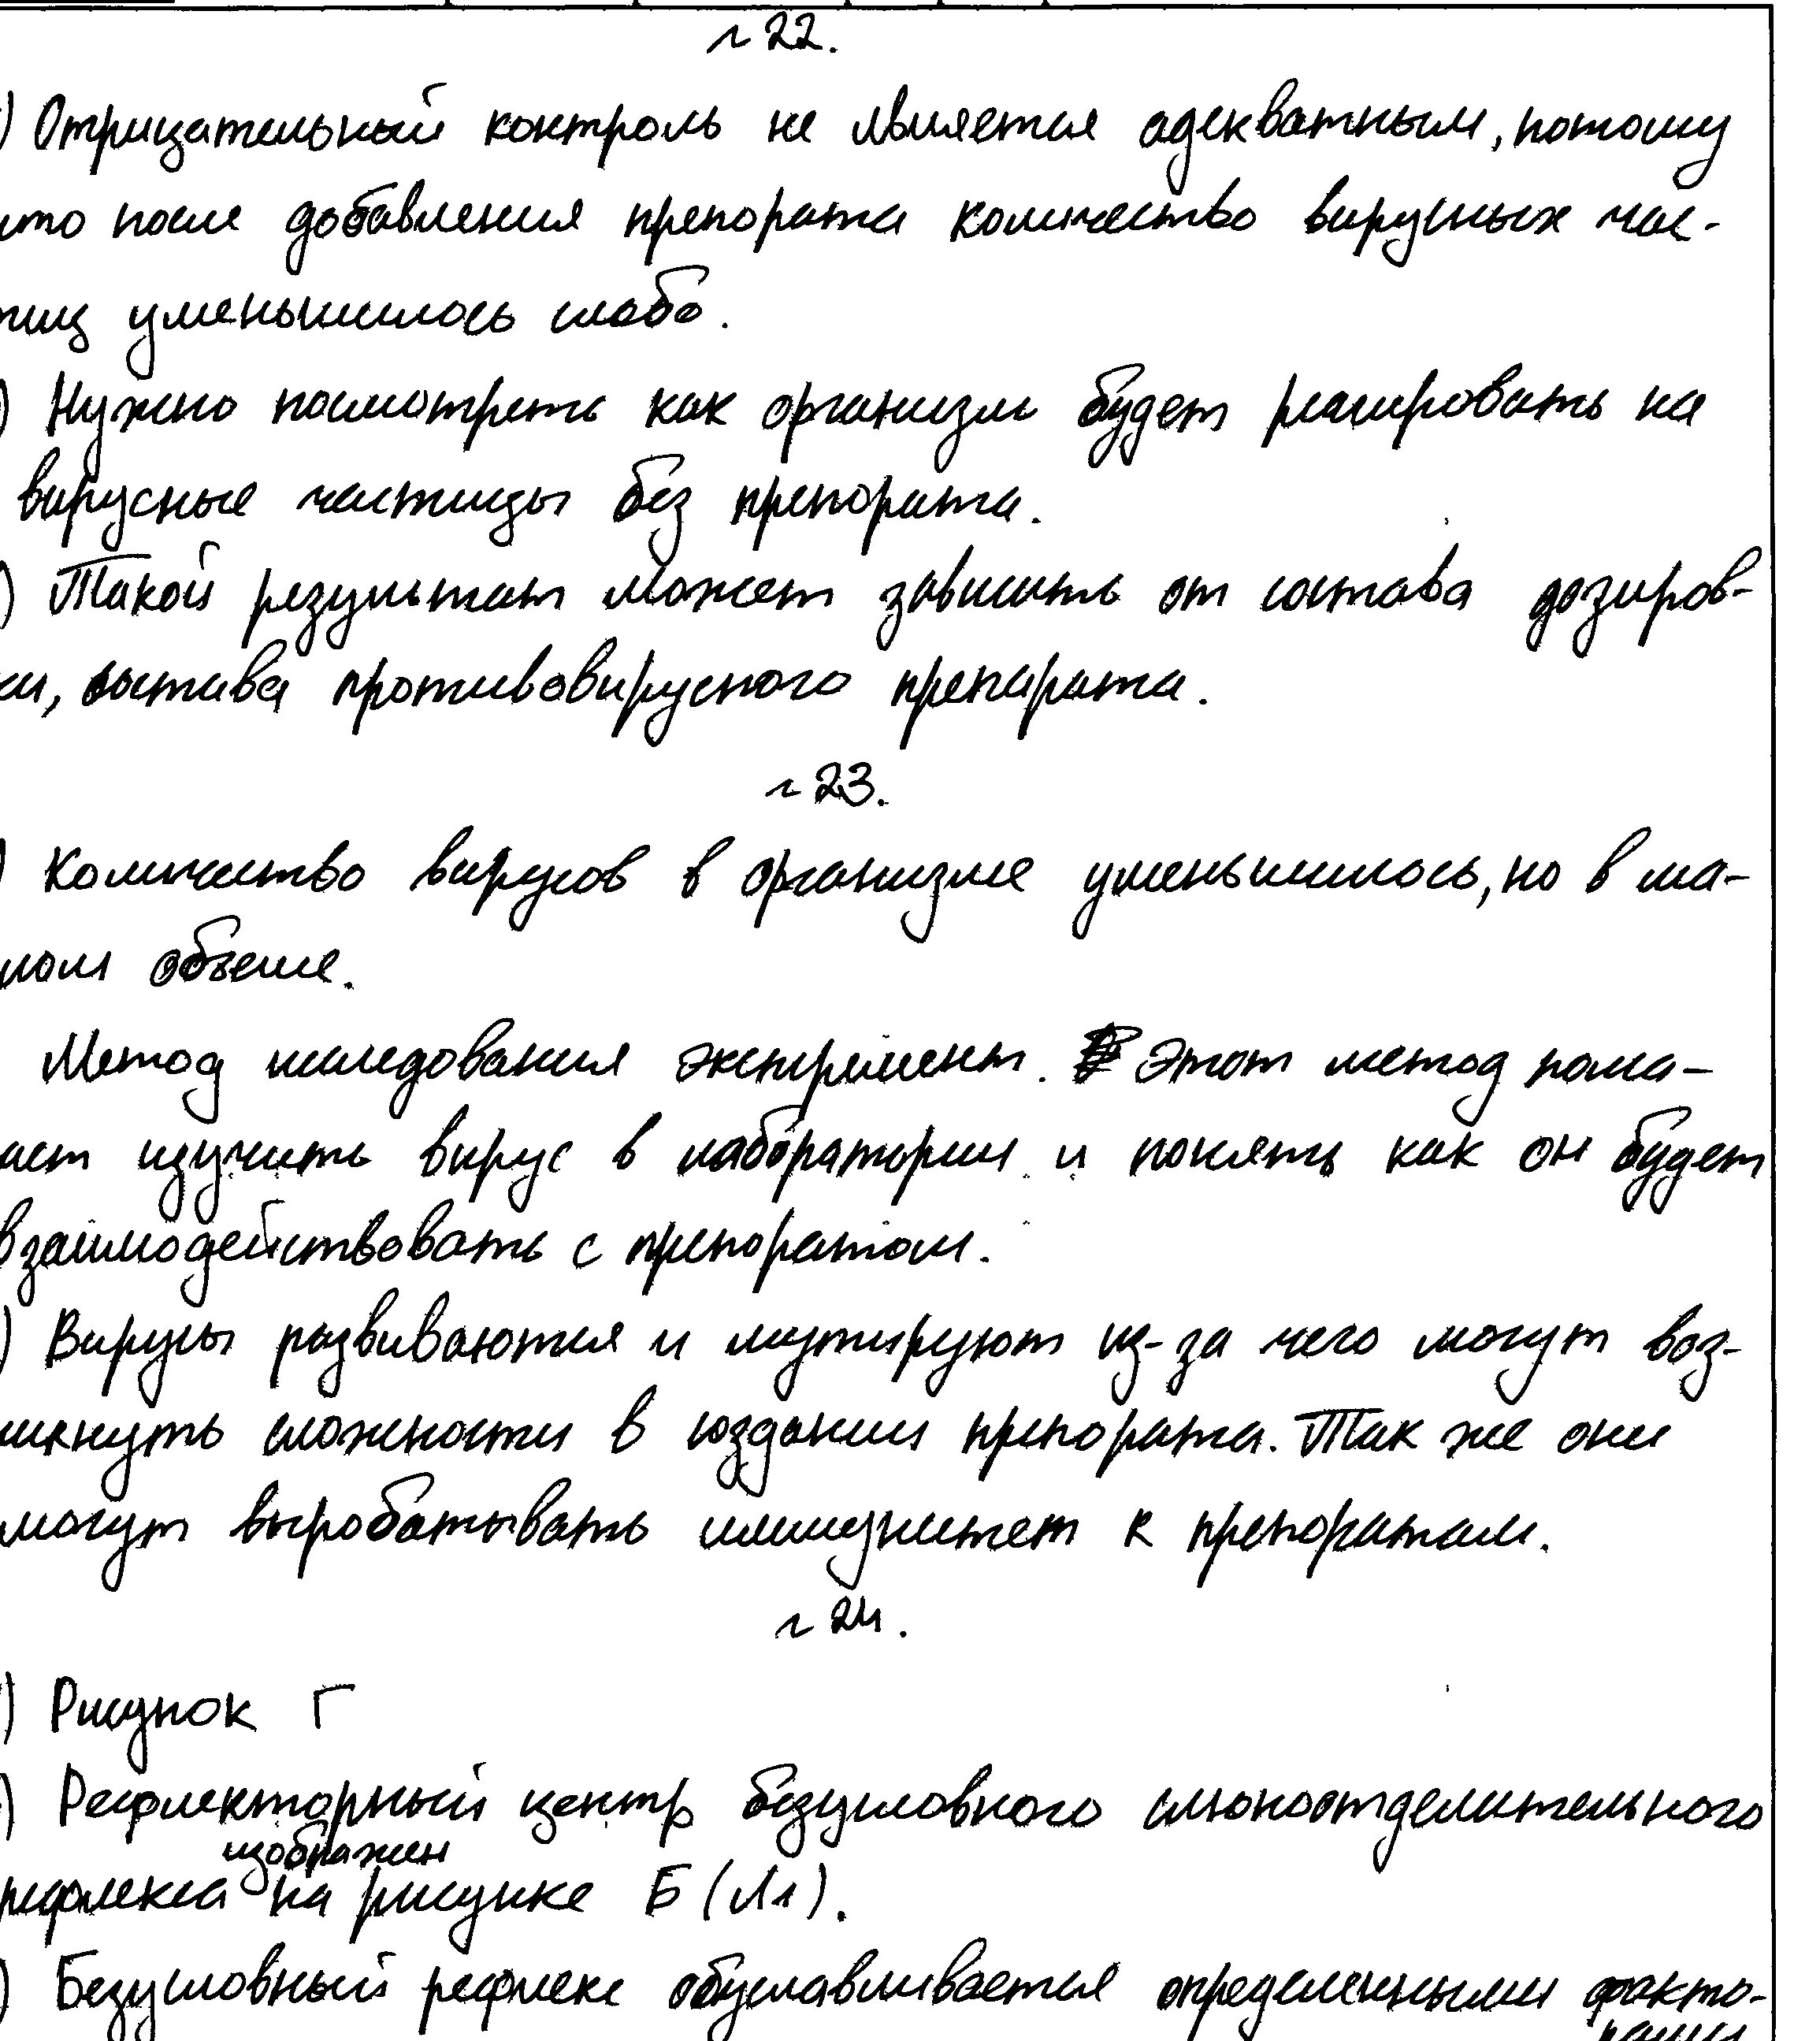 №22.
) Отрицательный контроль не является адекватным, потому
что после добавления препората количество вирусных час-
тиц уменьшилось слабо.
) Нужно посмотреть как организм будет реагировать на
вирусные частицы без препората.
) Такой результат может зависить от состава дозиров-
ки, состава противовирусного препарата.
№23.
) Количество вирусов в организме уменьшилось, но в ма-
лом объеме.
Метод исследования эксперимент. Этот метод пома-
ает изучить вирус в лаборатории и понять как он будет
взаимодействовать с препоратом.
) Вирусы развиваются и мутируют из-за чего могут воз-
никнуть сложности в создании препората. Так же они
могут выробатывать иммунитет к препоратам.
№24.
) Рисунок Г
) Рефлекторный центр безусловного слюноотделительного
изображен
рефлекса на рисунке Б (Л1).
) Безусловный рефлекс обуславливается определенными факто-